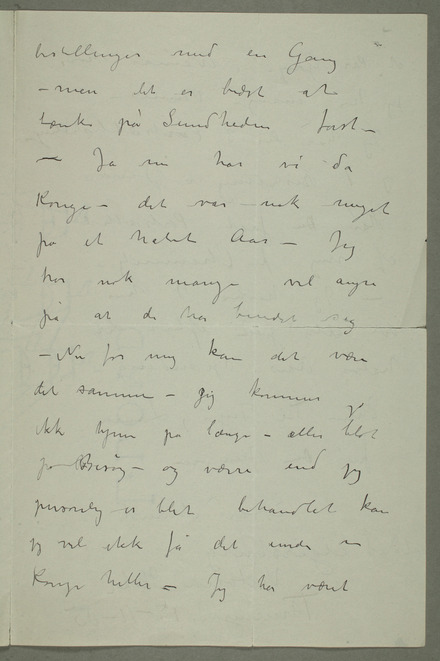 bestillinger med en Gang
– men det er bedst at
tænke på Sundheden først –
– Ja nu har vi da
Konge – det var nok meget
på et halvt Aar – Jeg
tror nok mange vil angre
på at de har bundet sig
– Nu for mig kan det være
det samme – jeg kommer jo
ikk hjem på længe – eller blot
på Besøg – og værre end jeg
personlig er blet behandlet kan
jeg vel ikk få det under en
Konge heller – Jeg har været